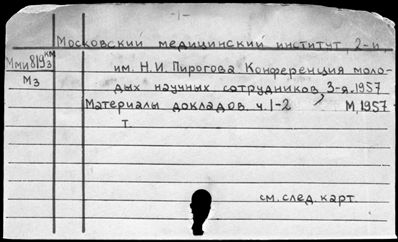 -1-
Московский медицинский институт, 2-й
им. Н.И. Пирогова Конференция моло-
дых научных сотрудников, 3-я. 1957
Материалы докладов. ч. 1-2 М, 1957
т.
см. след. карт.
км
М3